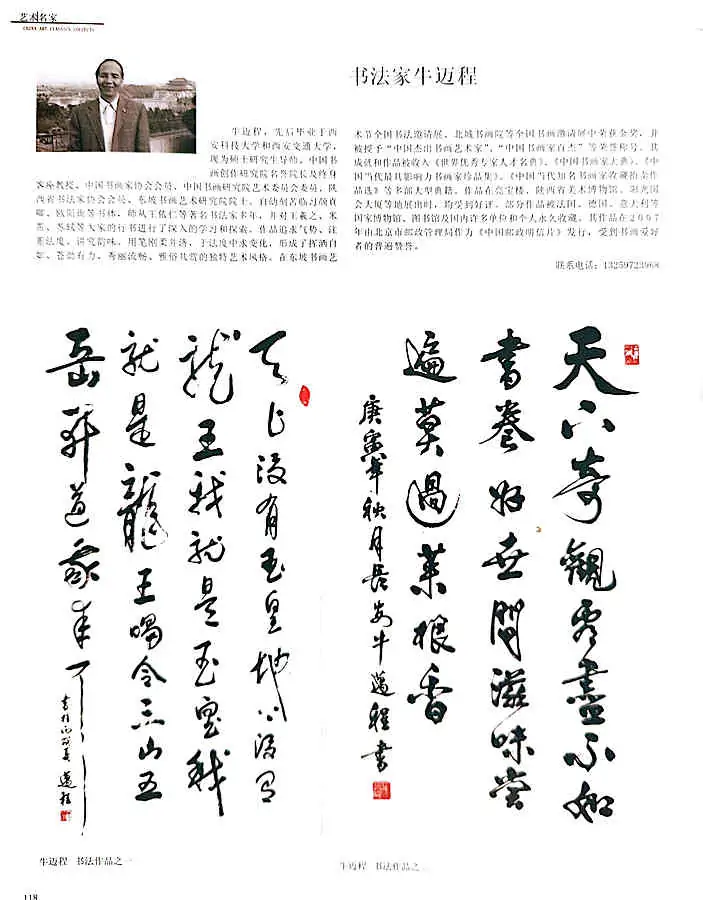 艺术名家
CHINA ART CLASSICS COLLECTS
书法家牛迈程
牛迈程，先后毕业于西
安科技大学和西安交通大学，
现为硕士研究生导师。中国书
画创作研究院名誉院长及终身
客座教授。中国书画家协会会员、中国书画研究院艺术委员会委员、陕
西省书法家协会会员、东坡书画艺术研究院院士。自幼刻苦临习颜真
卿、欧阳询等书体，师从王依仁等著名书法家多年，并对王羲之、米
芾、苏轼等大家的行书进行了深入的学习和探索。作品追求气势、注
重法度、讲究韵味，用笔刚柔并济，于法度中求变化，形成了挥洒自
如、苍劲有力、秀丽流畅、雅俗共赏的独特艺术风格。在东坡书画艺
术节全国书法邀请展、北城书画院等全国书画邀请展中荣获金奖，并
被授予“中国杰出书画艺术家”、“中国书画家百杰”等荣誉称号。其
成就和作品被收入《世界优秀专家人才名典》、《中国书画家大典》、《中
国当代最具影响力书画家珍品集》、《中国当代知名书画家收藏拍卖作
品选》等多部大型典籍。作品在荣宝楼、陕西省美术博物馆、
会大厦等地展出时，均受到好评。部分作品被法国、德国、意大利等
国家博物馆、图书馆及国内许多单位和个人永久收藏。其作品在２００７
年由北京市邮政管理局作为《中国邮政明信片》发行，受到书画爱好
者的普遍赞誉。
联系电话：13259723968
天下奇觀看盡不如
書卷好世間滋味嘗
遍莫過菜根香
庚寅年秋月長安牛邁程書
天上沒有玉皇地下沒有
龍王我就是玉皇我
就是龍王喝令三山五
岳開道我來了
邁程
牛迈程 书法作品之一
牛迈程 书法作品之二
118